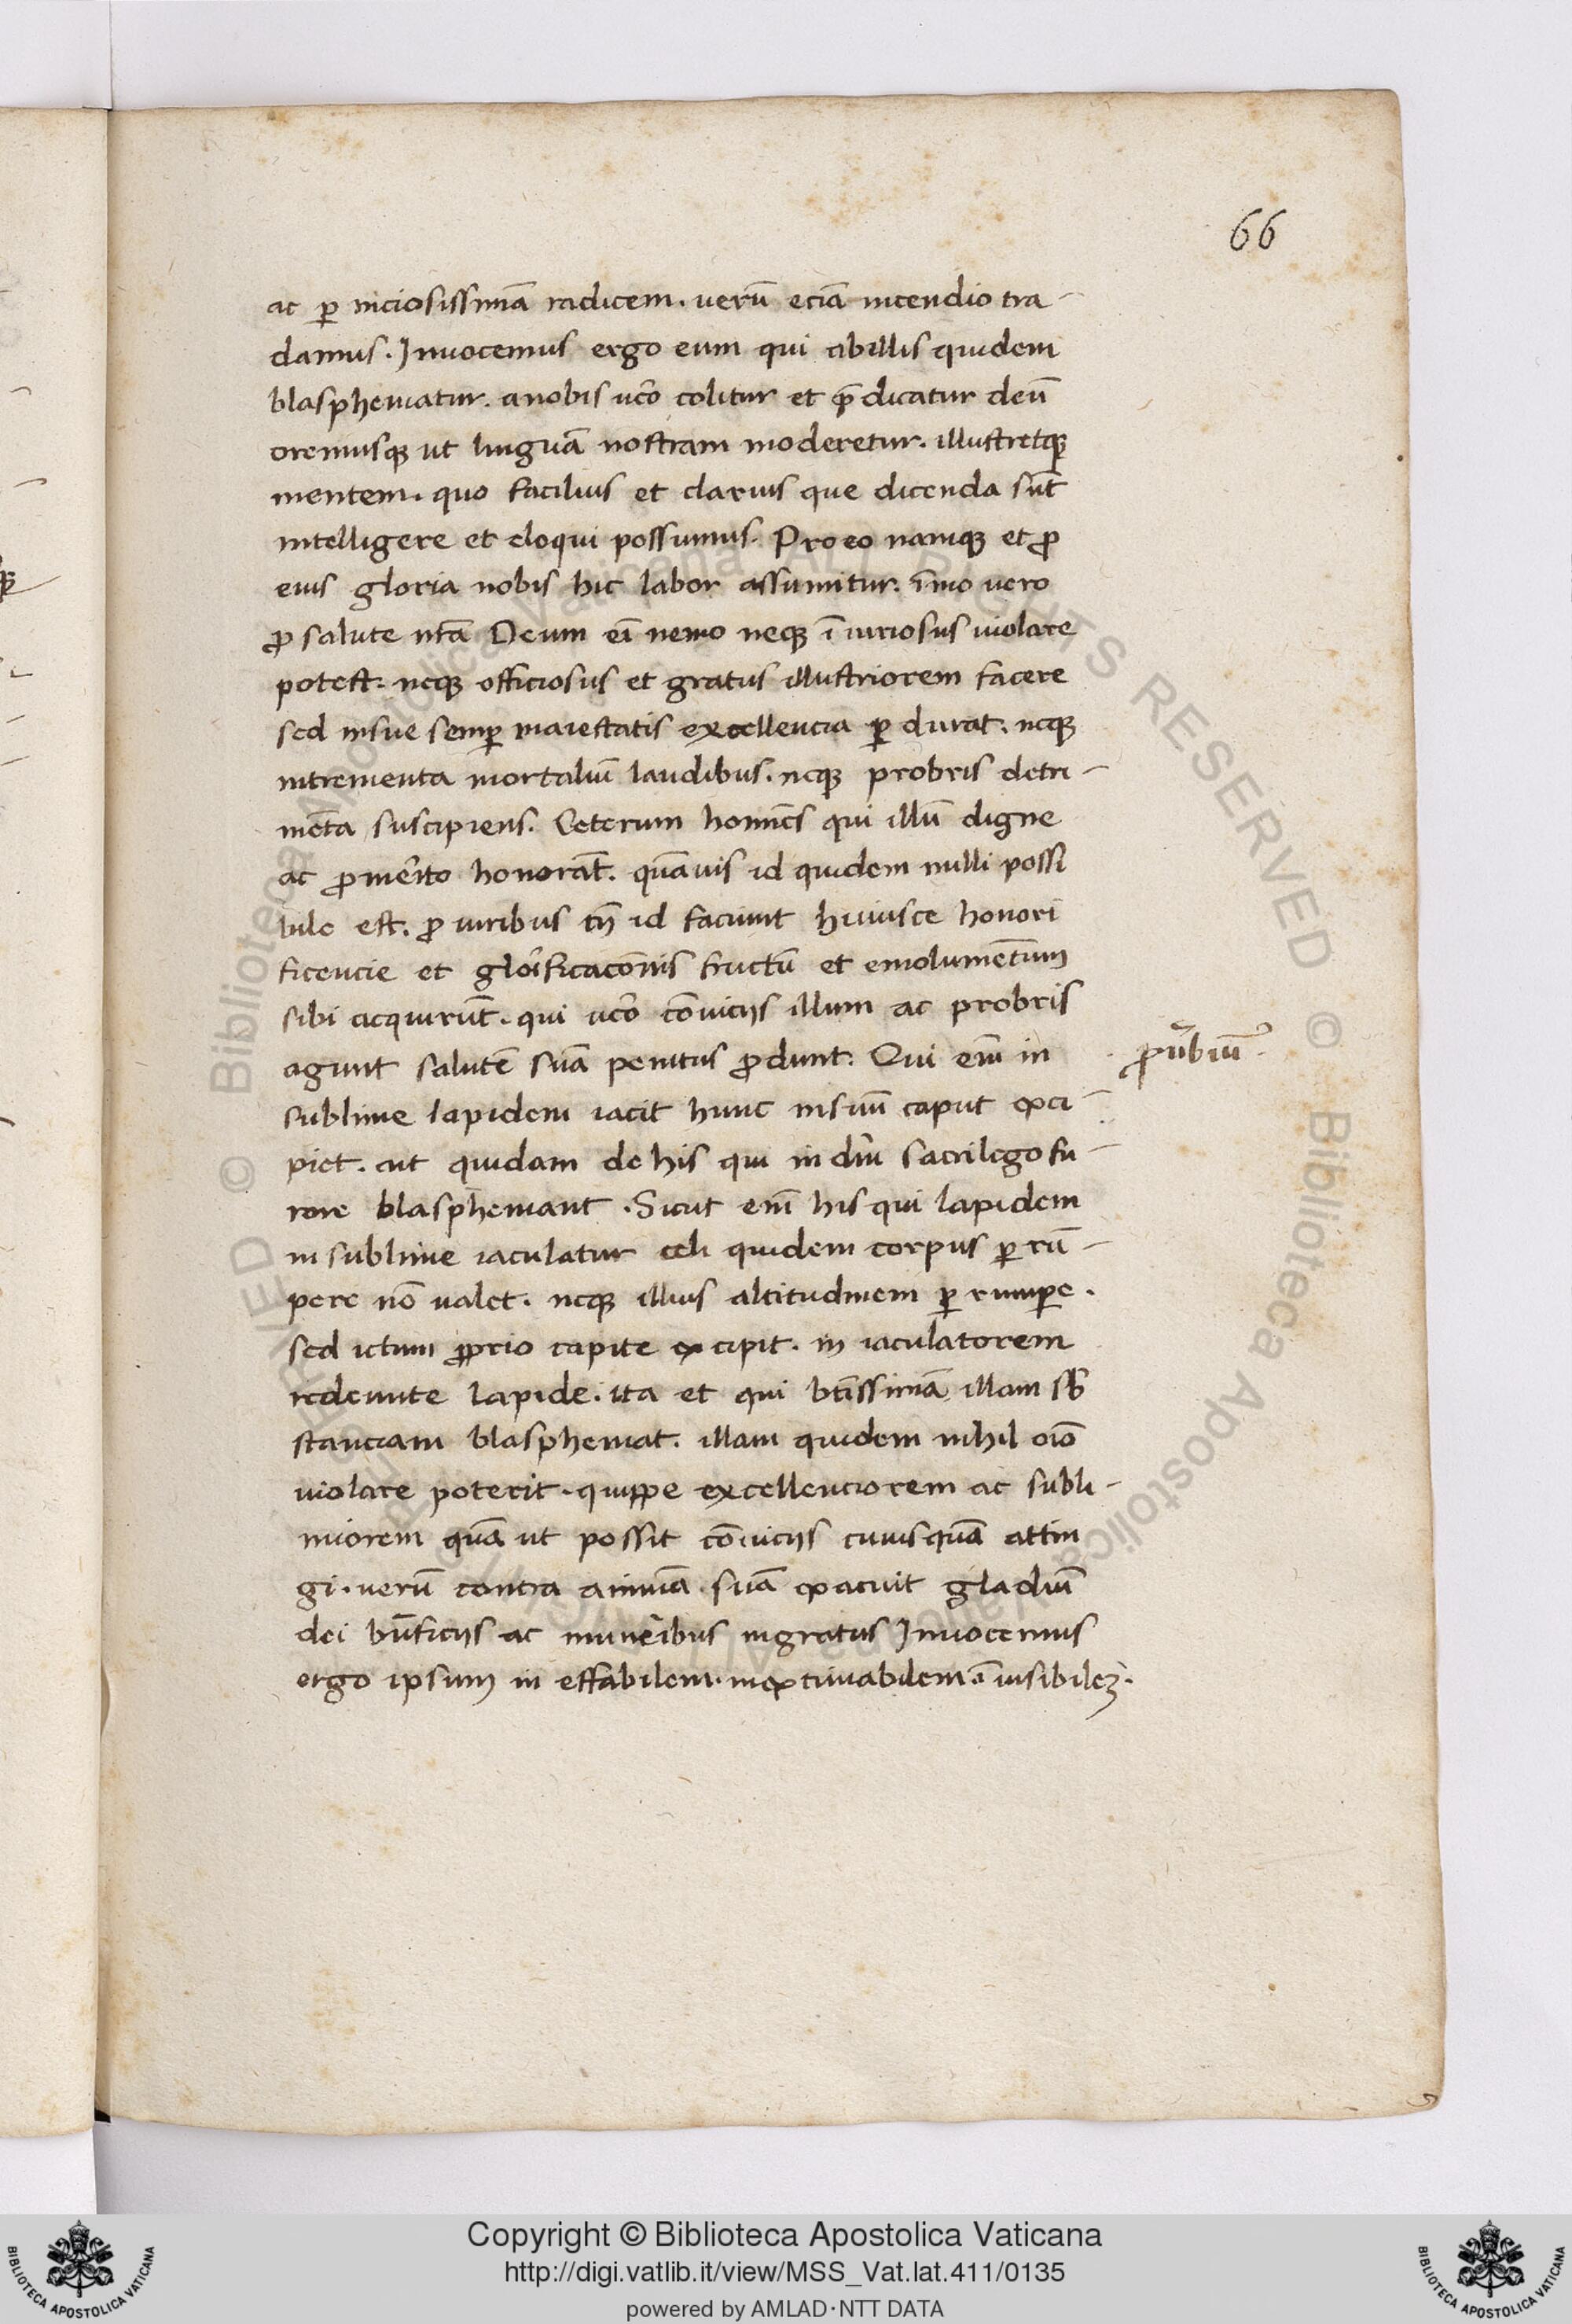 66
ac ꝑ niciosissimā radicem. uerū eciā incendio tra-
damus. Inuocemus ergo eum qui abillis quidem
blasphematur. anobis uco᷑ colitur et p̄dicatur deū
oremusqꝫ ut linguā nostram moderetur. illustretqꝫ
mentem. quo facilius et clarius que dicenda sūt
intelligere et eloqui possumus. Pro eo namqꝫ et ꝓ
eius gloria nobis hic labor assumitur. īmo uero
ꝓ salute nr̄a Deum eī nemo neqꝫ ī iuriosus uiolare
potest. neqꝫ officiosus et gratus illustriorem facere
sed insue semꝑ maiestatis excellencia ꝑ durat. neqꝫ
incrementa mortaliū laudibus. neqꝫ probris detri-
mēta suscipiens. Ceterum homīes qui illū digne
ac ꝓmerito honorāt. quāuis id quidem nulli possi
bile est. ꝓ uiribus tn̄ id faciunt huiusce honori
ficencie et glorificacōnis fructū et emolumētum
sibi acquirūt. qui uero cōuiciis illum ac probris
agunt salutē suā penitus ꝓdunt. Qui enī in
ꝓuꝰbiū
sublime lapidem iacit hunc insuū caput exci-
piet. ait quidam de his qui in dn̄i sacrilego fu-
rore blasphemant. Sicut enī his qui lapidem
in sublime iaculatur celi quidem corpus ꝑ rū-
pere nō ualet. neqꝫ illius altitudinem ꝑ rumꝑe.
sed ictum ꝓprio capite excipit. in iaculatorem
redeunte lapide. ita et qui bt̄issimā illam sb̄
stanciam blasphemat. illam quidem nihil oīo
uiolare poterit. quippe excellenciorem ac subli-
miorem quā ut possit cōuiciis cuiusquā attin
gi. uerū contra animā suā exacuit gladiū
dei bn̄ficiis ac muneribus ingratus Inuocemus
ergo ipsum in effabilem. inextimabilem. ī uisibileꝫ.
Copyright © Biblioteca Apostolica Vaticana
http://digi.vatlib.it/view/MSS_Vat.lat.411/0135
powered by AMLAD·NTT DATA
BIBLIOTECA APOSTOLICA VATICANA
BIBLIOTECA APOSTOLICA VATICANA